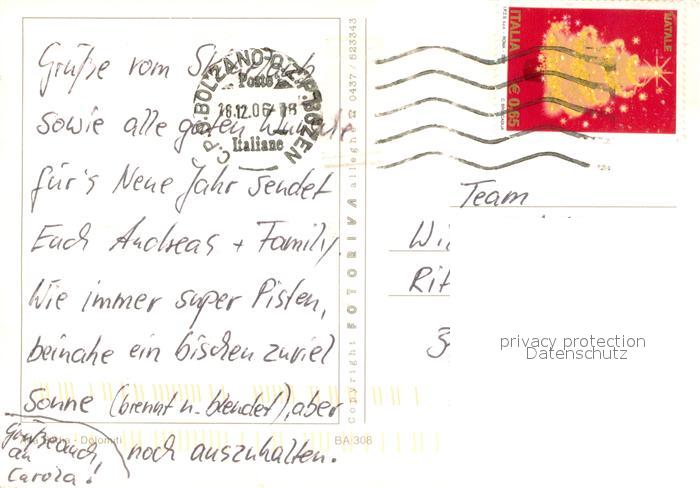 Grüße vom Skiurlaub
sowie alle guten Wünsche
für's Neue Jahr sendet
Euch Andreas + Family.
Wie immer super Pisten,
beinahe ein bischen zuviel
Sonne (brennt u. blendet), aber
noch auszuhalten.
Grüße auch
an
Carola!
Dolomiti
BA 308
Copyright FOTORIVA alleghe 0437/523343
C.P.O. BOLZANO BOZEN
Poste
18.12.06
Italiane
ITALIA € 0,65
NATALE
Team
privacy protection
Datenschutz